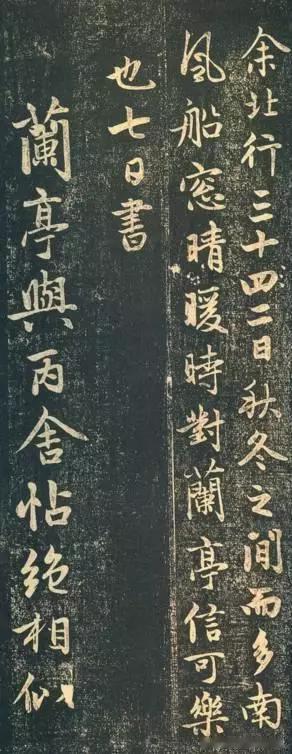 余北行三十四二日秋冬之間而多南
風船窓晴暖時對蘭亭信可樂
也七日書
蘭亭與丙舍帖絕相似